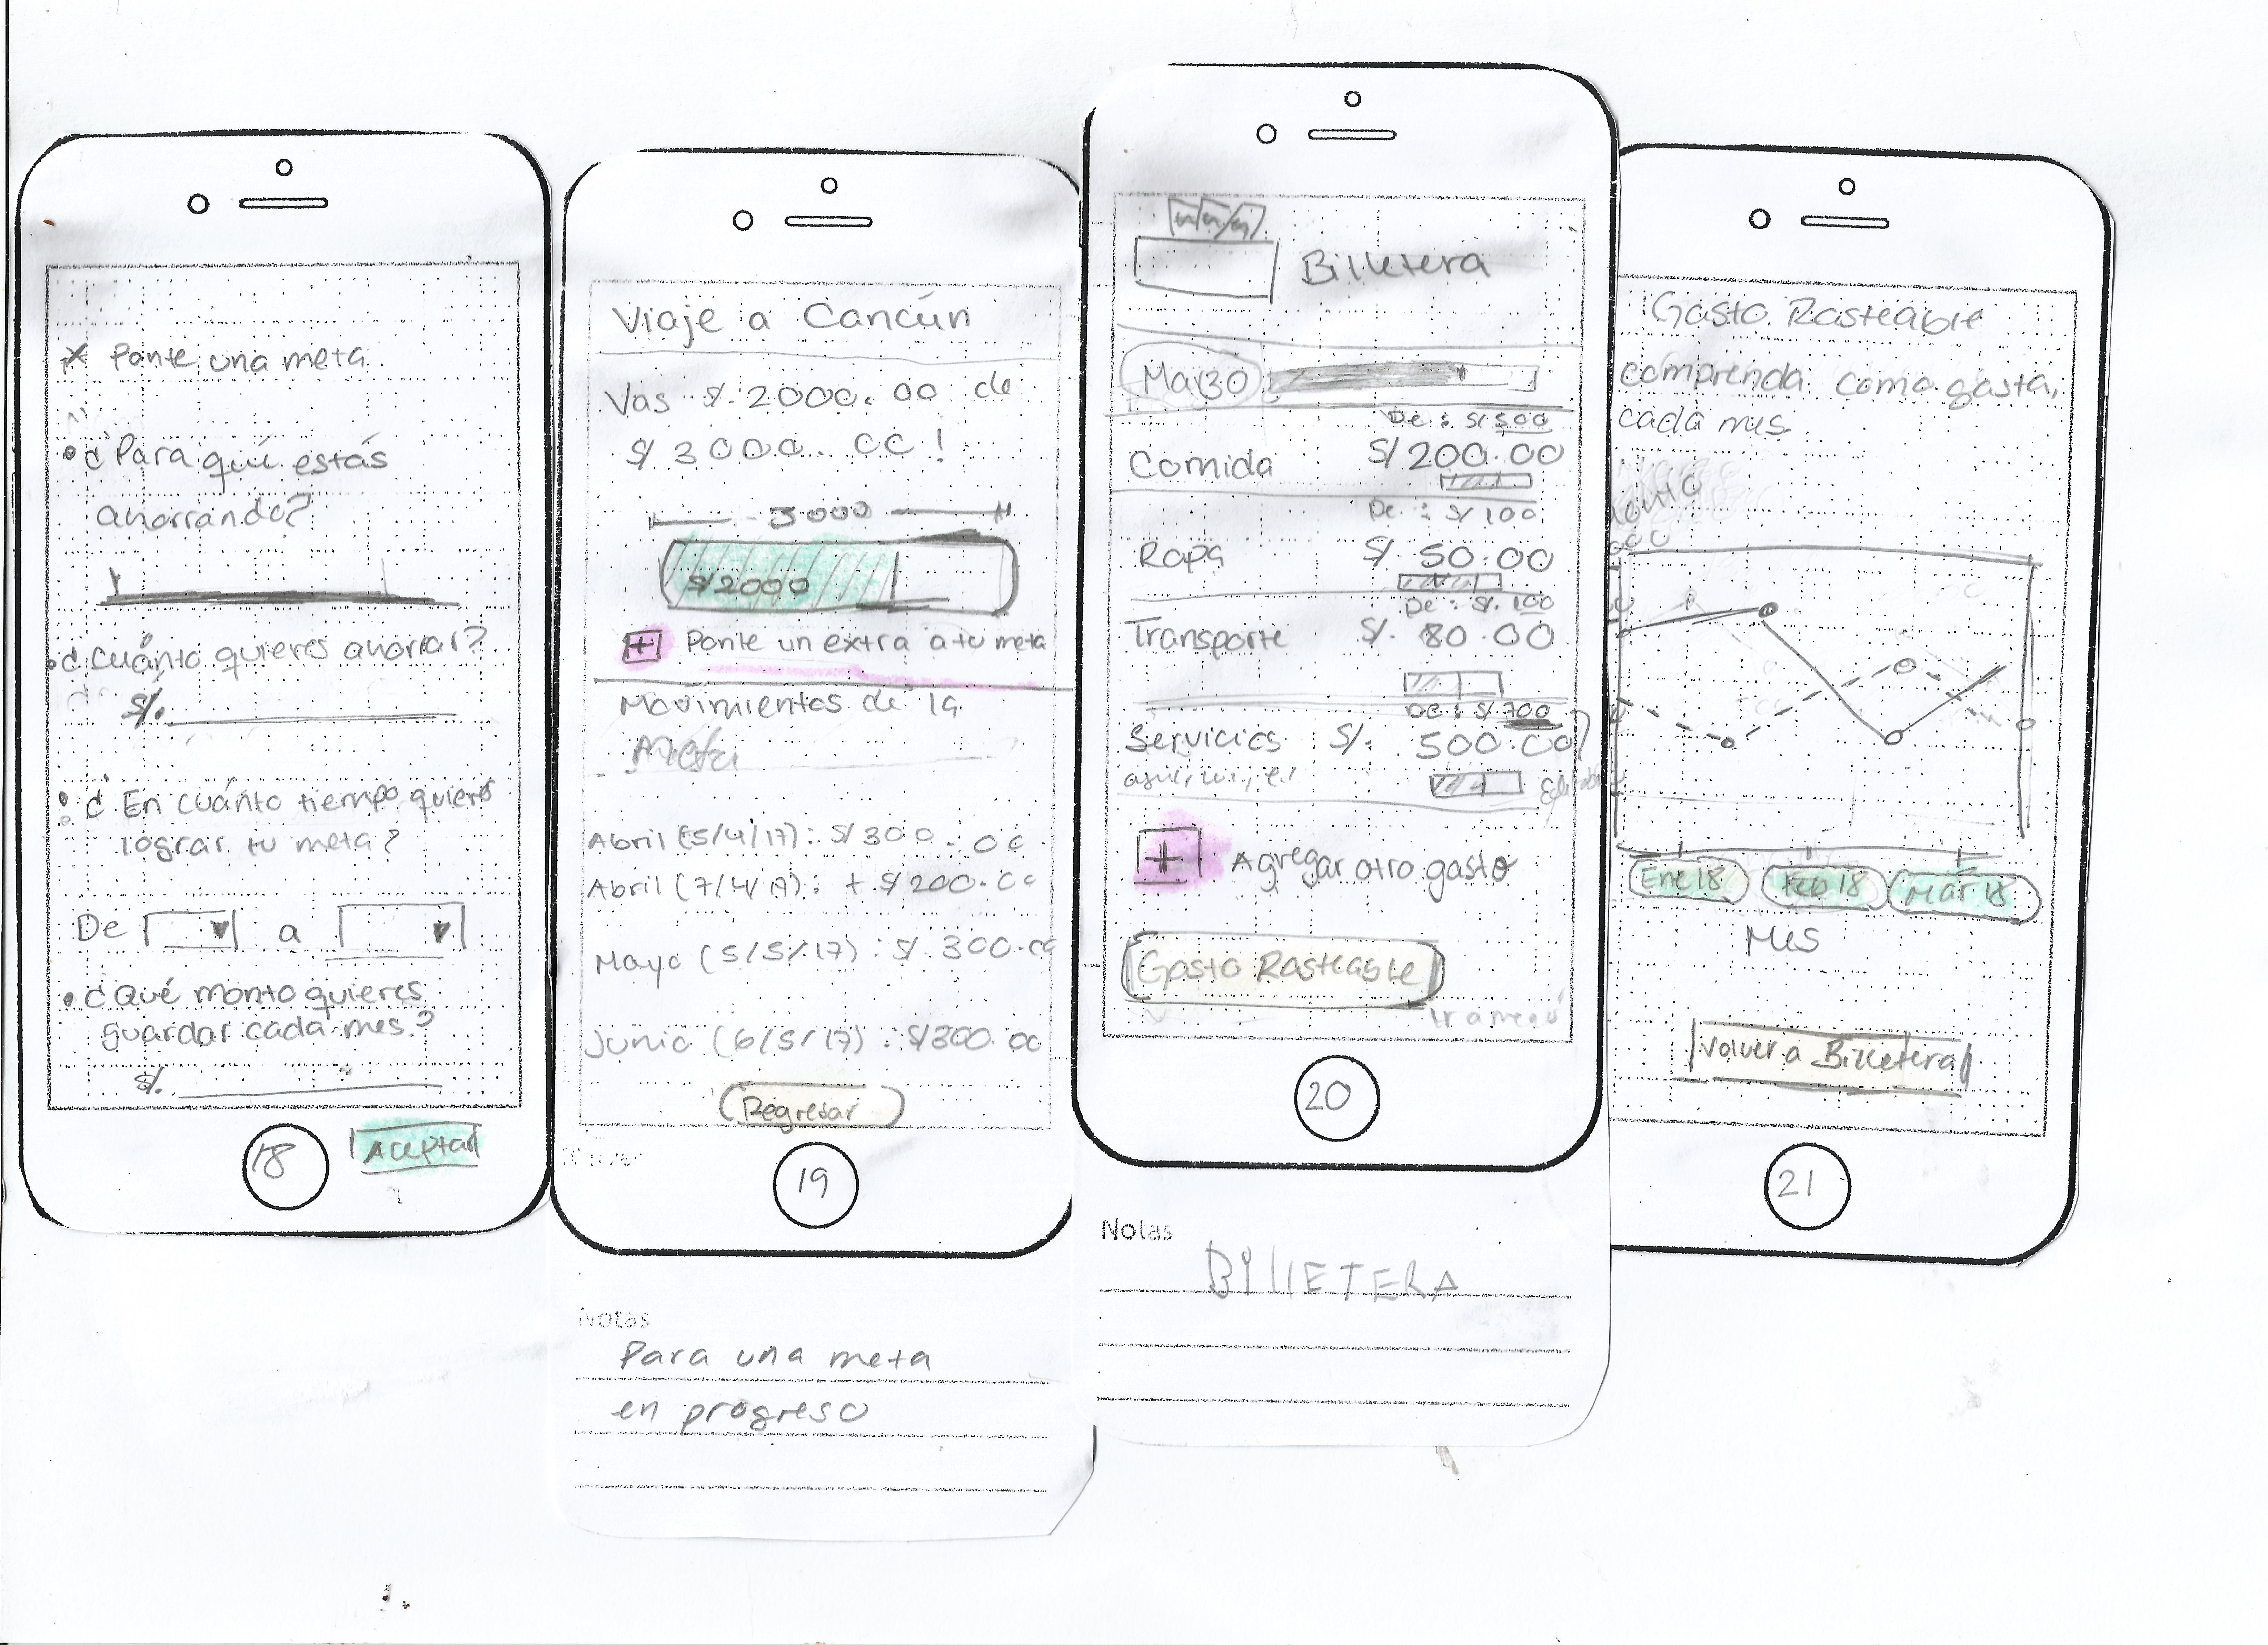 x Ponte una meta
• ¿Para qué estás
ahorrando?
• ¿Cuánto quieres ahorrar?
S/.
• ¿En cuánto tiempo quieres
lograr tu meta?
De a
• ¿Qué monto quieres
guardar cada mes?
S/.
18
Aceptar
Viaje a Cancún
Vas S/. 2000.00 de
S/ 3000.00!
3000
S/2000
+ Ponte un extra a tu meta
Movimientos de la
Meta
Abril (5/4/17): S/300.00
Abril (7/4/17): + S/200.00
Mayo (5/5/17): S/. 300.00
Junio (6/5/17): S/300.00
Regresar
19
Notas
Para una meta
en progreso
Billetera
Marzo
De: S/.500
Comida S/200.00
De: S/100
Ropa S/. 50.00
De: S/.100
Transporte S/. 80.00
De: S/700
Servicios S/. 500.00
+ Agregar otro gasto
Gasto Rasteable
Ir a menú
20
Notas
BIllETERA
Gasto Rasteable
comprenda como gasta
cada mes
Ene 18 Feb 18 Mar 18
Mes
Volver a Billetera
21